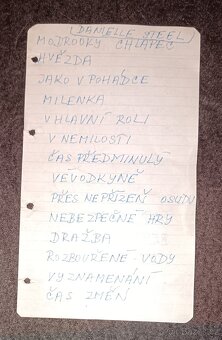 (DANIELLE STEEL)
MODROOKÝ CHLAPEC
HVĚZDA
JAKO V POHÁDCE
MILENKA
V HLAVNÍ ROLI
V NEMILOSTI
ČAS PŘEDMINULÝ
VÉVODKYNĚ
PŘES NEPŘÍZEŇ OSUDU
NEBEZPEČNÉ HRY
DRAŽBA
ROZBOUŘENÉ VODY
VYZNAMENÁNÍ
ČAS ZMĚN